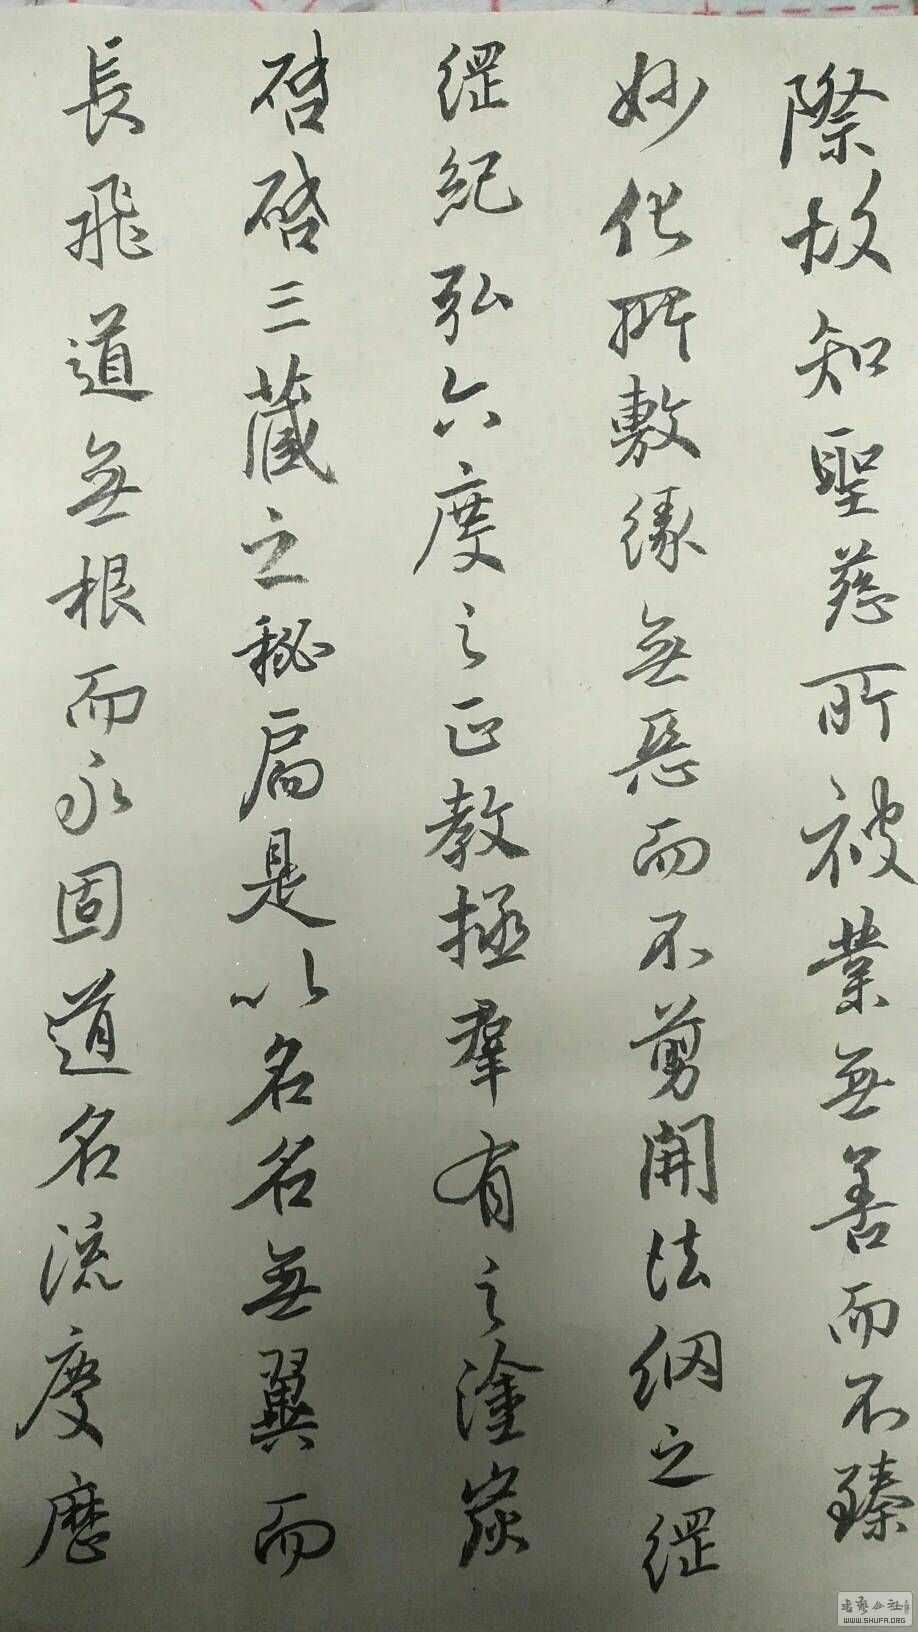 際故知聖慈所被業無善而不臻
妙化所敷緣無惡而不剪開法網之綱
綱紀弘六度之正教拯羣有之塗炭
啓啓三藏之秘扃是以名名無翼而
長飛道無根而永固道名流慶歷
書藝公社
WWW.SHUFA.ORG